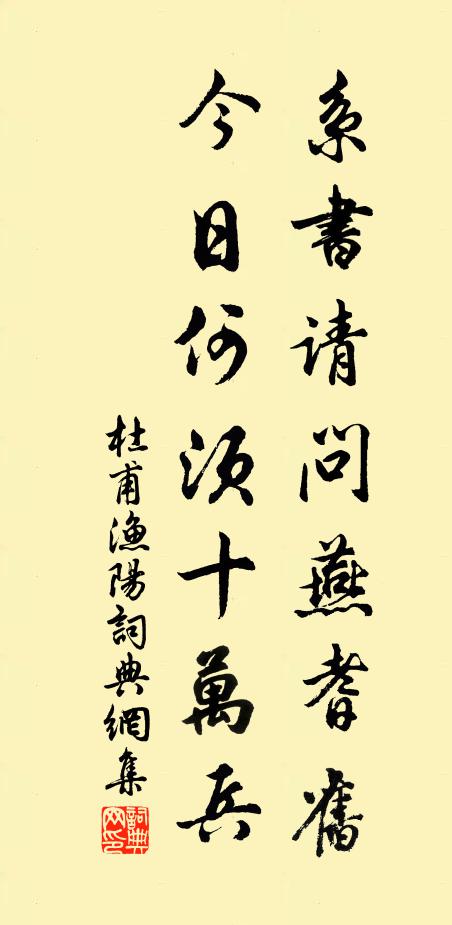 系書请問燕耆舊
今日何须十萬兵
杜甫漁陽詞典網集
詞典网印